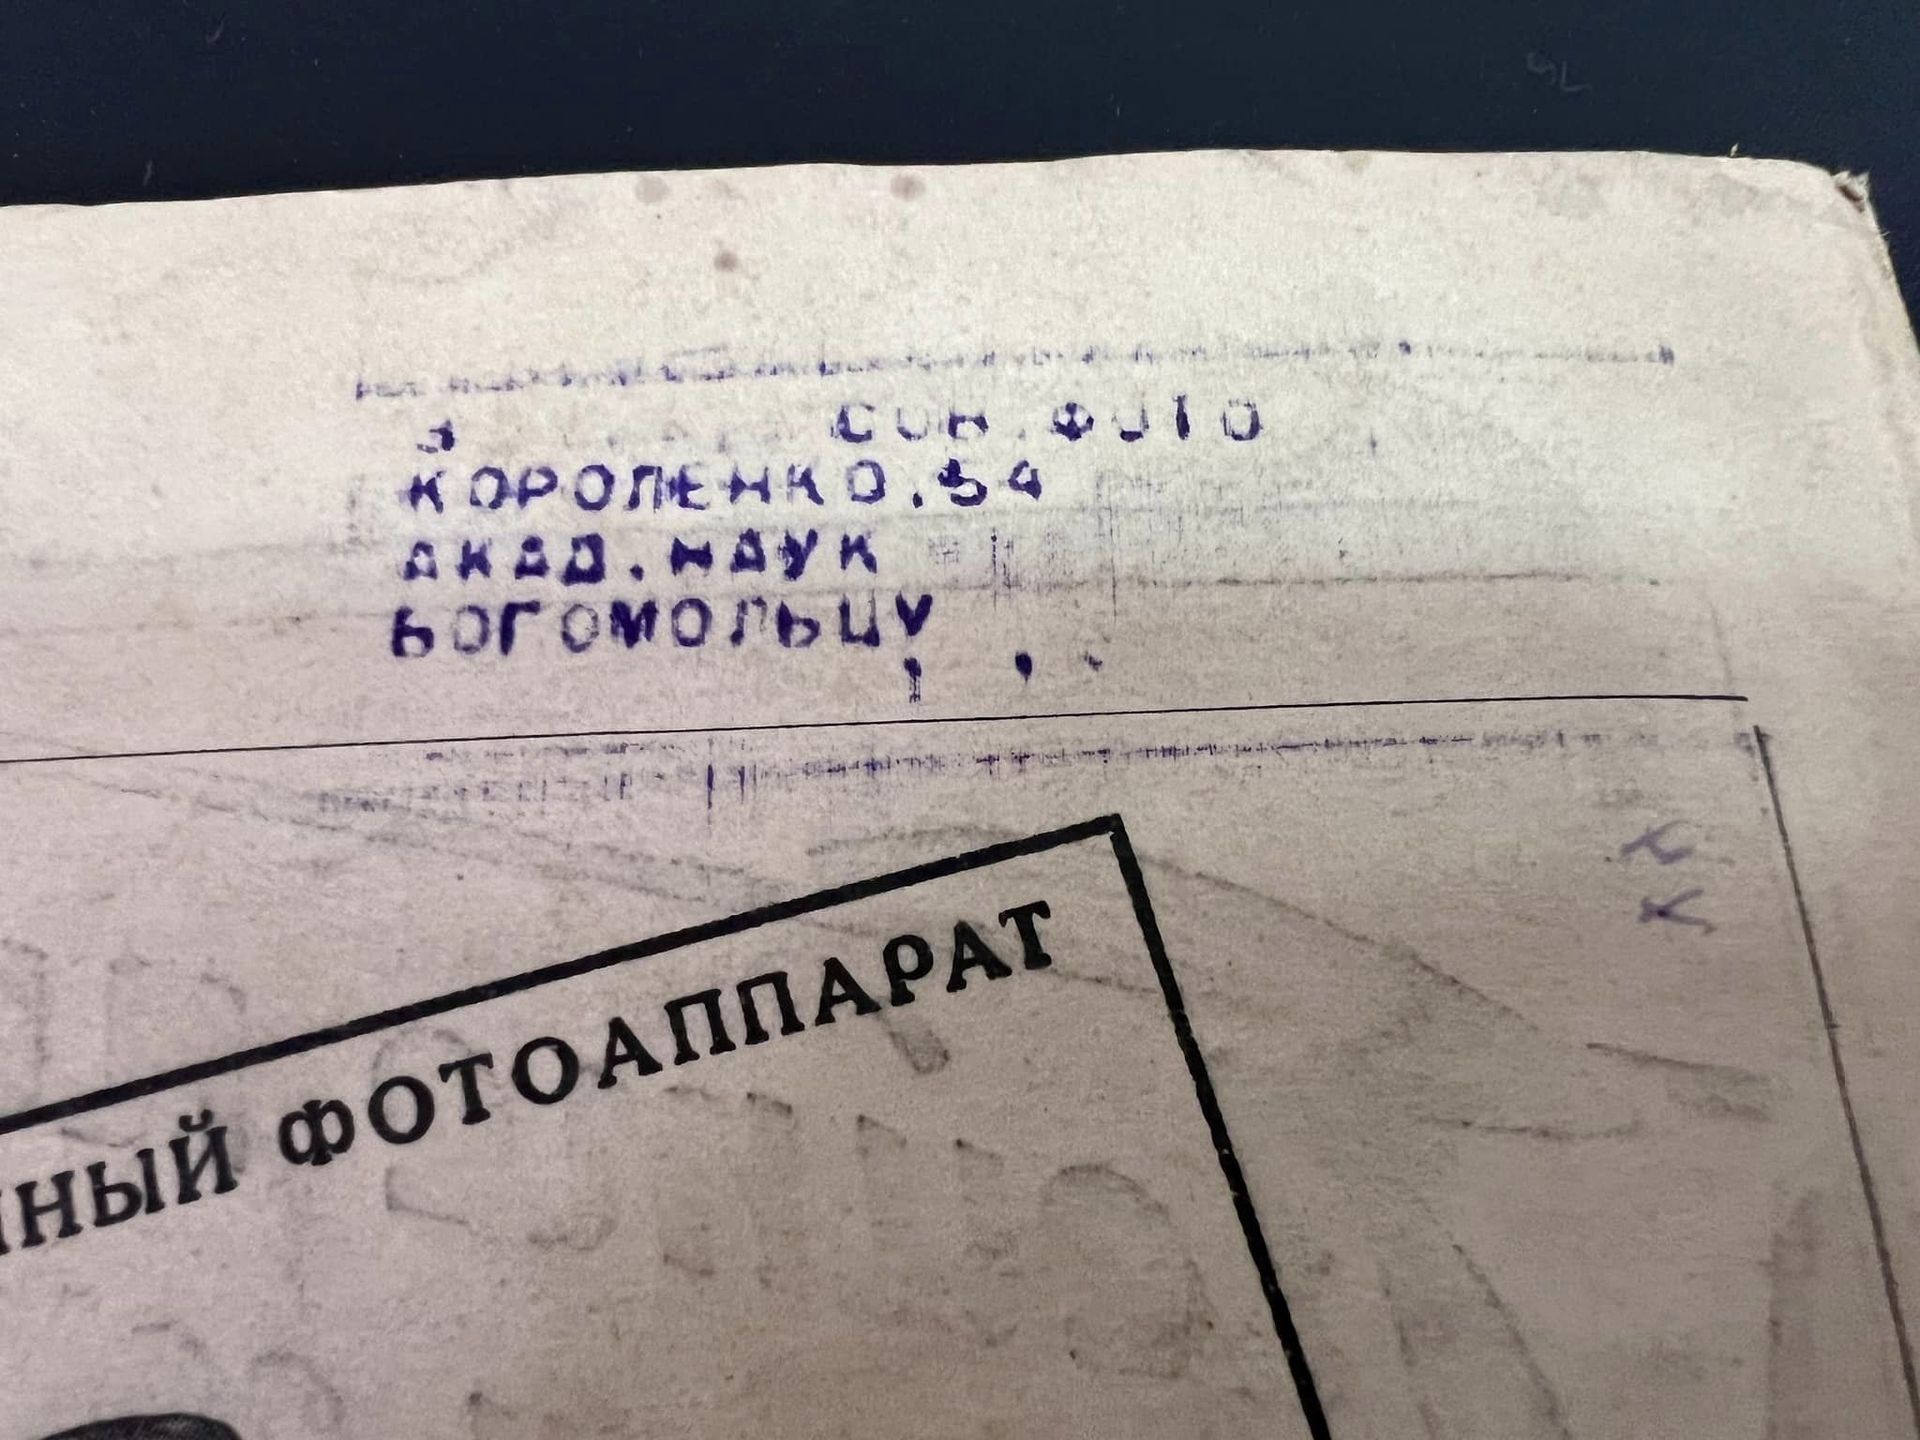 3 СОВ.ФОТО
КОРОЛЕНКО.54
АКАД.НАУК
БОГОМОЛЬЦУ
ФОТОАППАРАТ